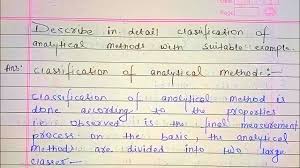 Describe in detail classification of
analytical methods with suitable example.
Ans:
classification of analytical method:-
classification of analytical method is
done according to the properties
i.e observed is the final measurement
process on the basis the analytical
methods are divided into two large
classer-